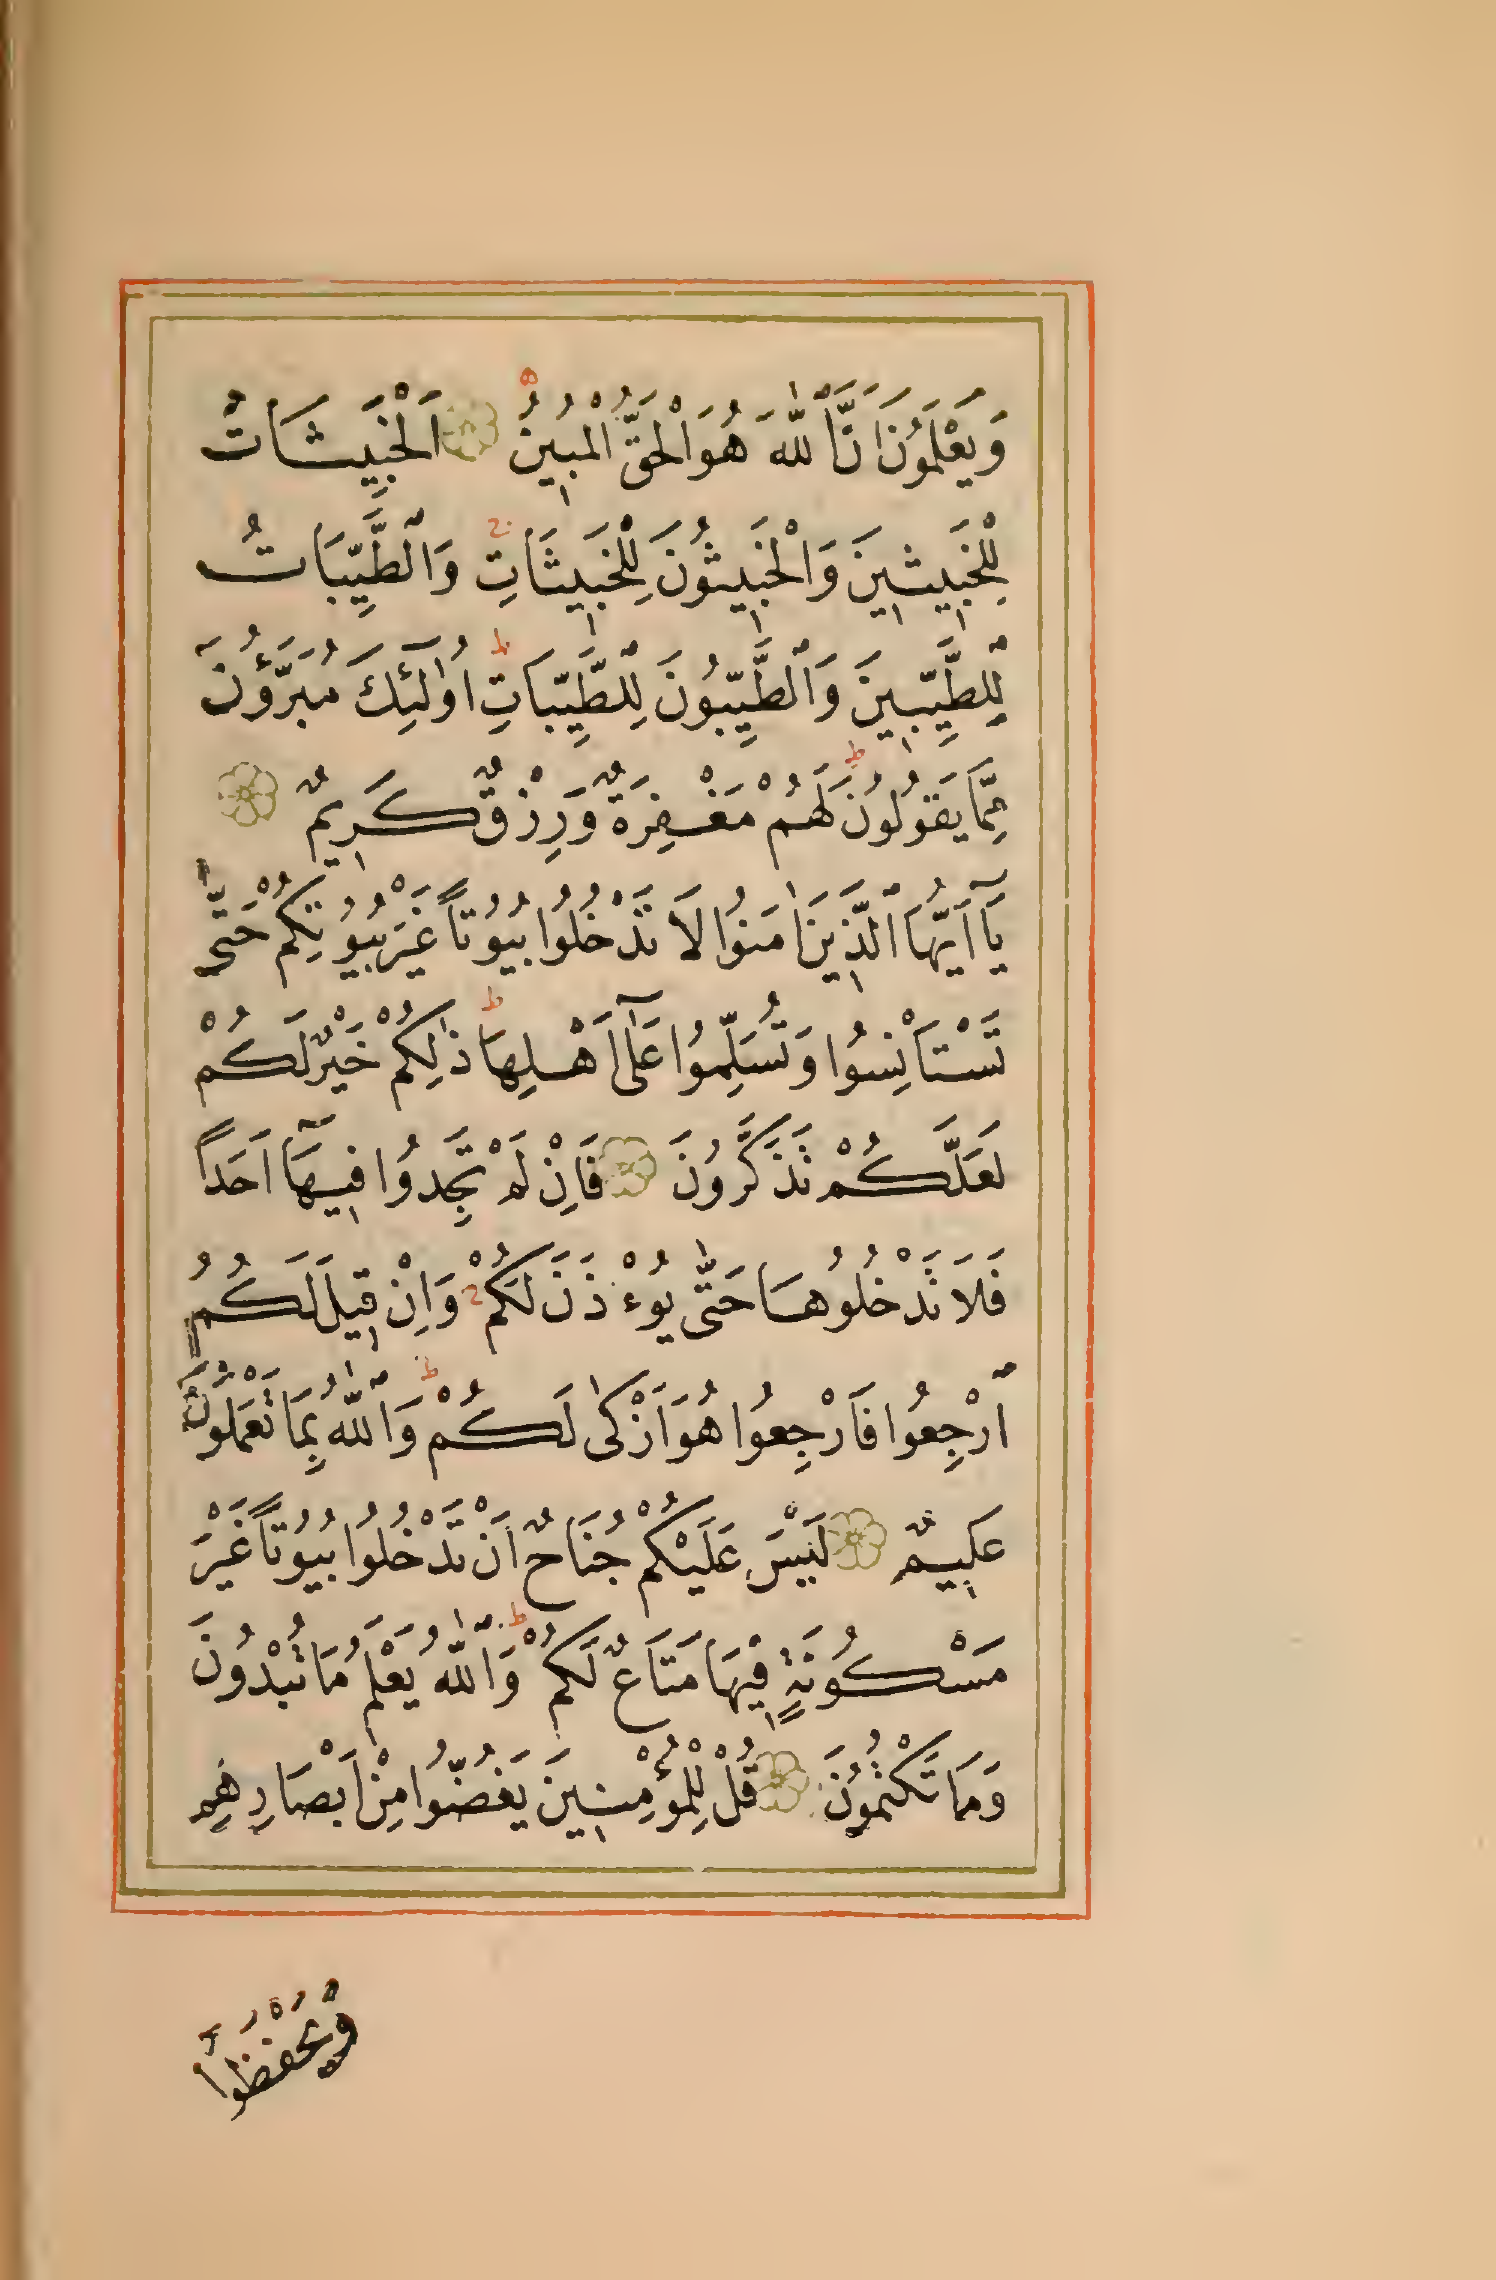 وَيَعْلَمُونَ اَنَّ ٱللّٰهَ هُوَ الْحَقُّ الْمُبِينُ ۝ اَلْخَبِيثَاتُ
لِلْخَبِيثِينَ وَالْخَبِيثُونَ لِلْخَبِيثَاتِ ج وَٱلطَّيِّبَاتُ
لِلطَّيِّبِينَ وَٱلطَّيِّبُونَ لِلطَّيِّبَاتِ ط اُولٰٓئِكَ مُبَرَّؤُنَ
مِمَّا يَقُولُونَ ط لَهُمْ مَغْفِرَةٌ وَرِزْقٌ كَرِيمٌ ۝
يَآ اَيُّهَا ٱلَّذِينَ اٰمَنُوا لَا تَدْخُلُوا بُيُوتاً غَيْرَ بُيُوتِكُمْ حَتّٰى
تَسْتَاْنِسُوا وَتُسَلِّمُوا عَلٰٓى اَهْلِهَا ط ذٰلِكُمْ خَيْرٌ لَكُمْ
لَعَلَّكُمْ تَذَكَّرُونَ ۝ فَاِنْ لَمْ تَجِدُوا فِيهَآ اَحَداً
فَلَا تَدْخُلُوهَا حَتّٰى يُوءْذَنَ لَكُمْ ج وَاِنْ قِيلَ لَكُمُ
ٱرْجِعُوا فَارْجِعُوا هُوَ اَزْكٰى لَكُمْ ط وَٱللّٰهُ بِمَا تَعْمَلُونَ
عَلِيمٌ ۝ لَيْسَ عَلَيْكُمْ جُنَاحٌ اَنْ تَدْخُلُوا بُيُوتاً غَيْرَ
مَسْكُونَةٍ فِيهَا مَتَاعٌ لَكُمْ ط وَٱللّٰهُ يَعْلَمُ مَا تُبْدُونَ
وَمَا تَكْتُمُونَ ۝ قُلْ لِلْمُؤْمِنِينَ يَغُضُّوا مِنْ اَبْصَارِهِمْ
وَيَحْفَظُوا